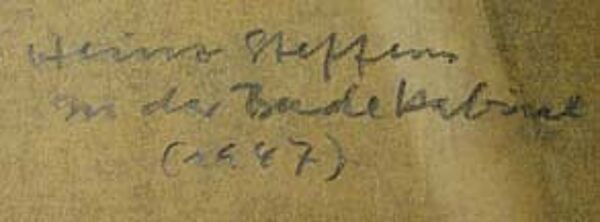 Heinz Steffens
In der Badekabine
(1947)